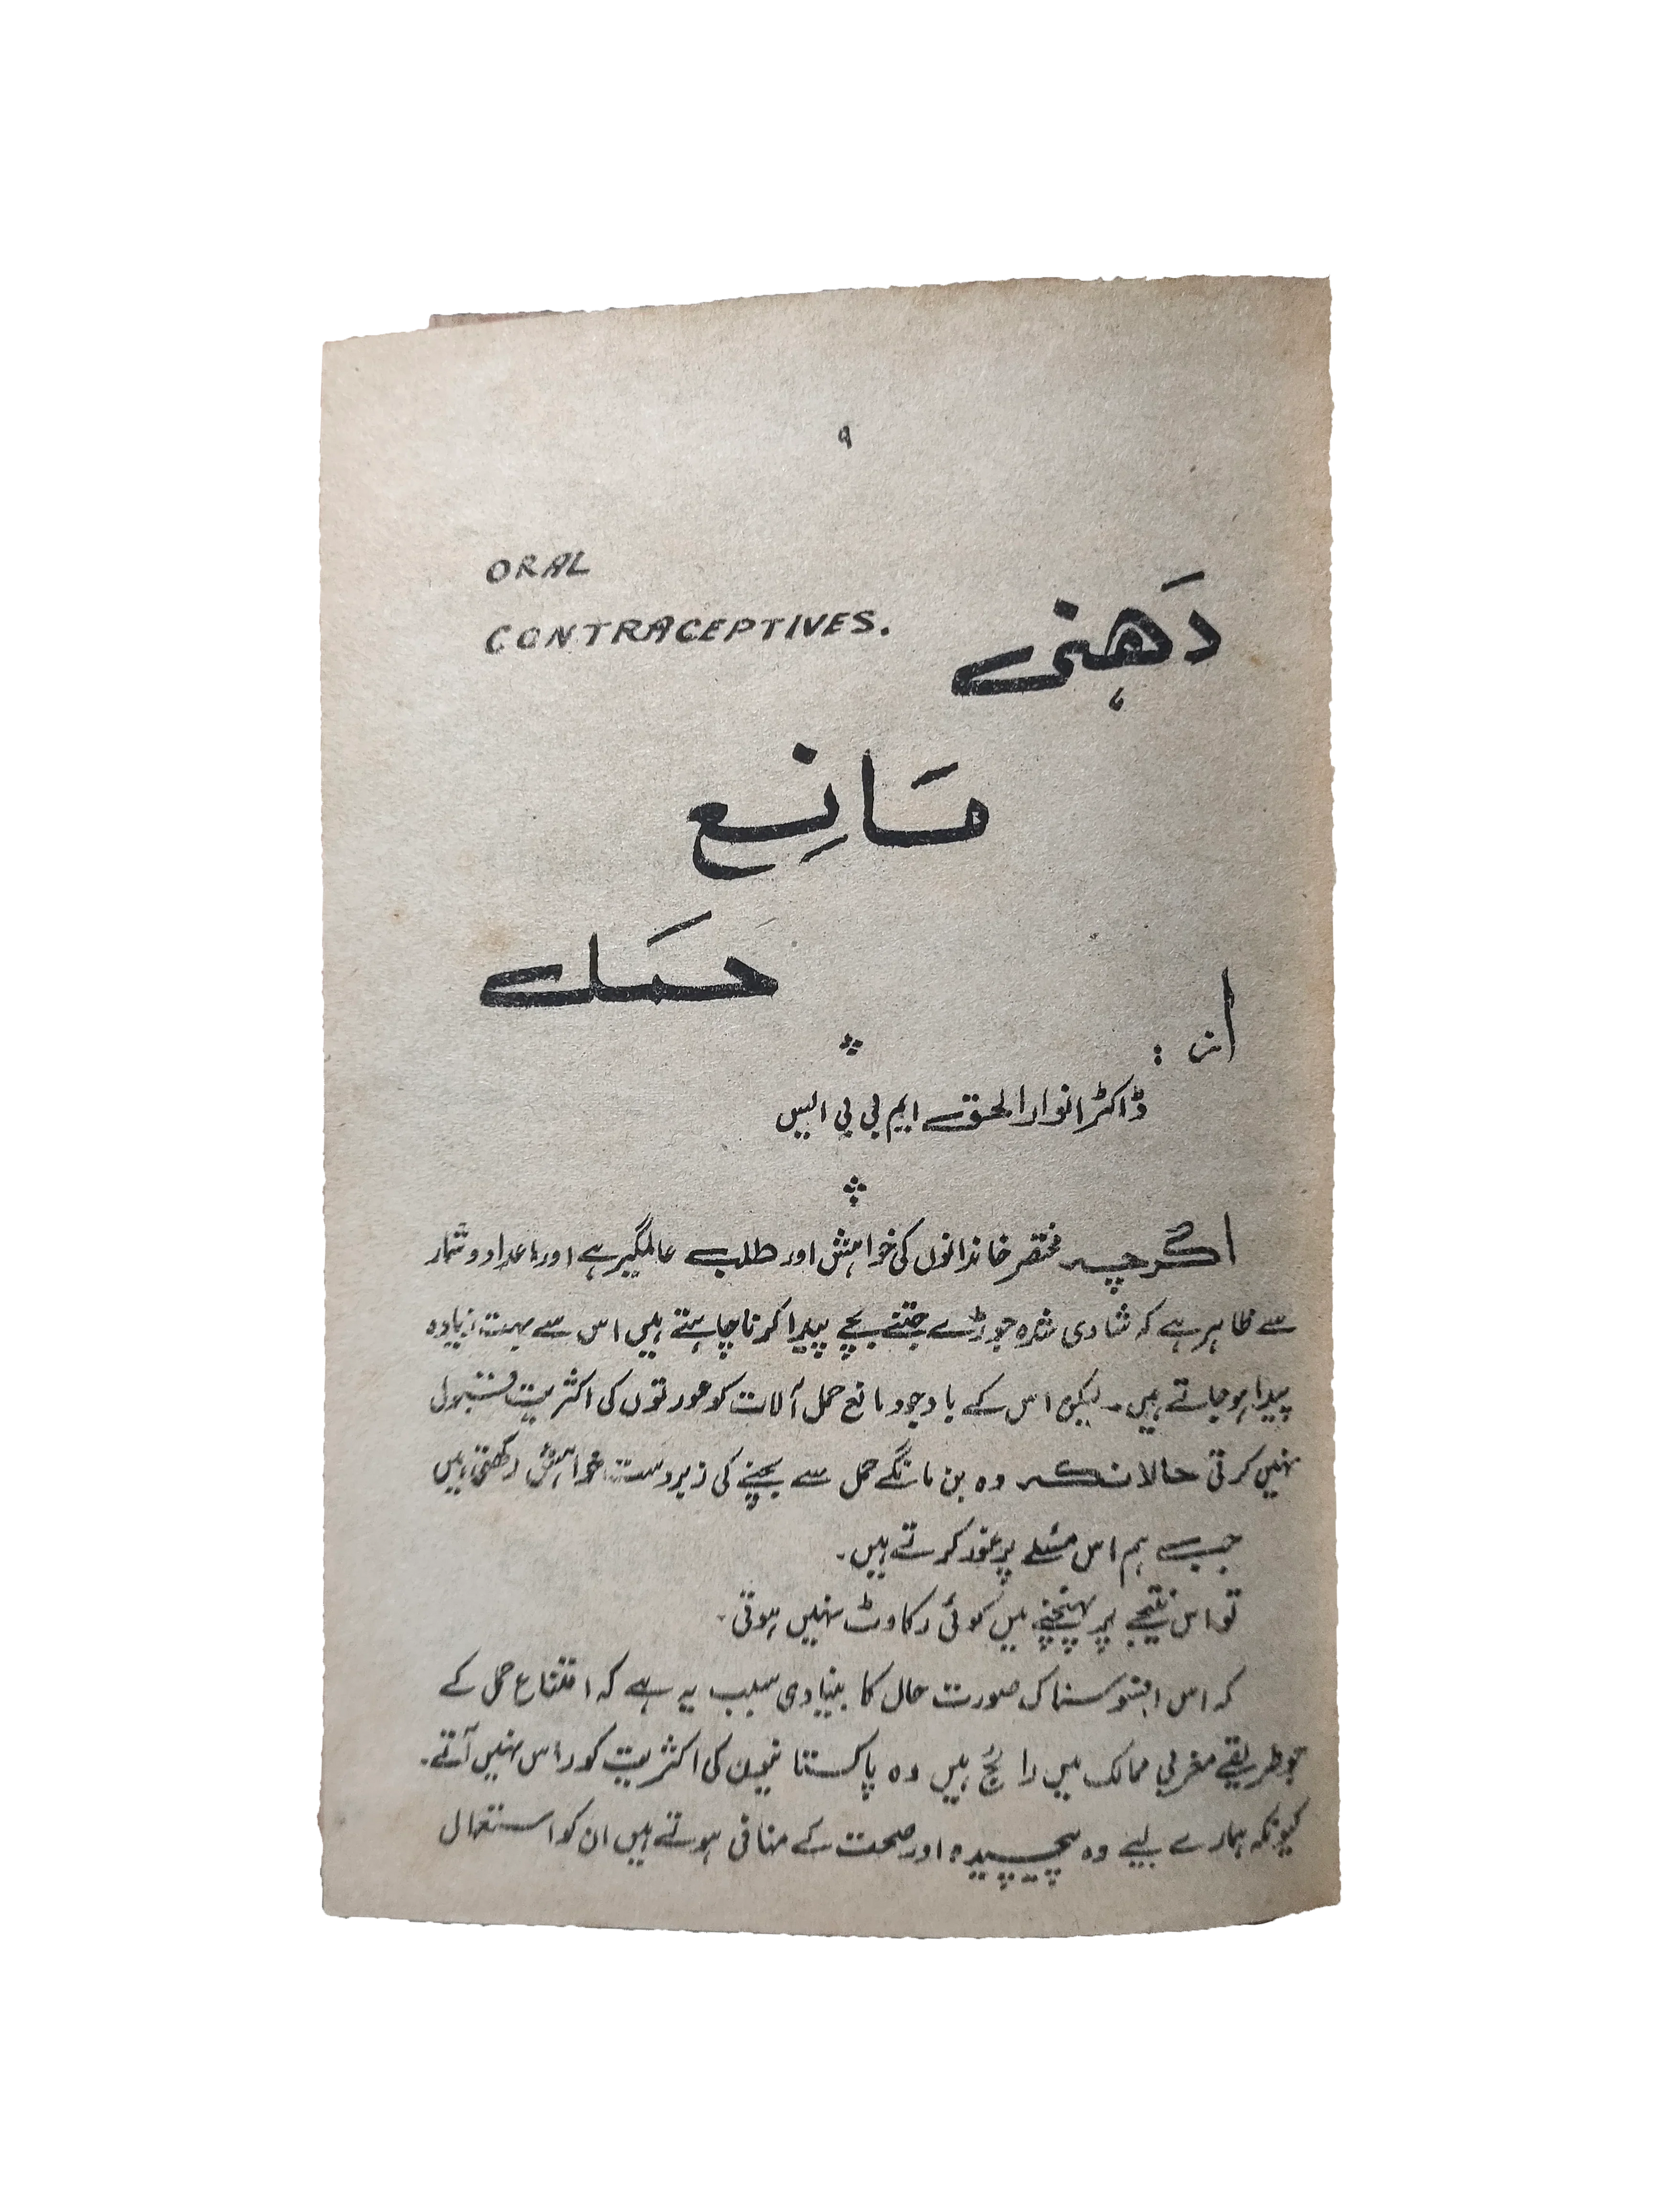 ۹
ORAL
CONTRACEPTIVES.
دَهنی
مَانِع
حمَل
از :
ڈاکٹر انوار الحق ایم بی بی ایس
اگرچہ مختصر خاندانوں کی خواہش اور طلب عالمگیر ہے اور اعداد و شمار
سے ظاہر ہے کہ شادی شدہ جوڑے جتنے بچے پیدا کرنا چاہتے ہیں اس سے بہت زیادہ
پیدا ہو جاتے ہیں۔ لیکن اس کے باوجود مانع حمل آلات کو عورتوں کی اکثریت قبول
نہیں کرتی حالانکہ وہ بن مانگے حمل سے بچنے کی زبردست خواہش رکھتی ہیں
جب ہم اس مسئلے پر غور کرتے ہیں۔
تو اس نتیجے پر پہنچنے میں کوئی رکاوٹ نہیں ہوتی۔
کہ اس افسوسناک صورت حال کا بنیادی سبب یہ ہے کہ امتناع حمل کے
جو طریقے مغربی ممالک میں رائج ہیں وہ پاکستانیوں کی اکثریت کو راس نہیں آتے۔
کیونکہ ہمارے لیے وہ پیچیدہ اور صحت کے منافی ہوتے ہیں ان کو استعمال